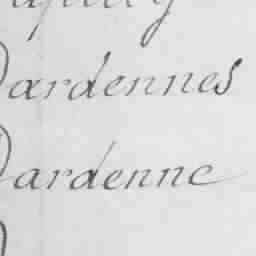 Dardennes
Dardenne